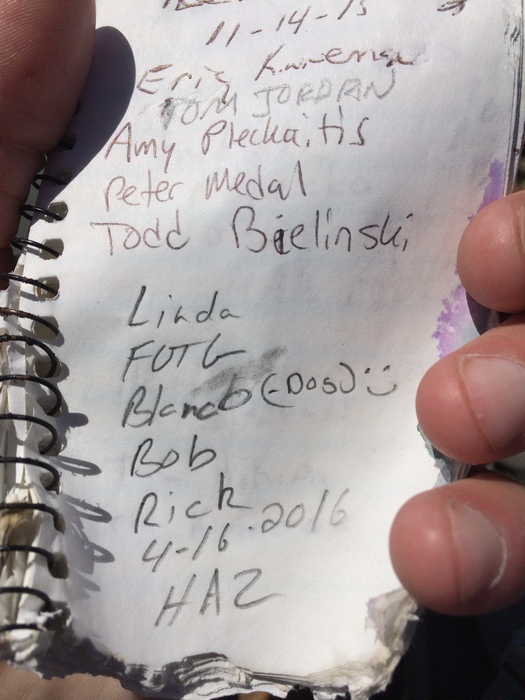 11-14-15
Eric
TOM JORDAN
Amy Pleckaitis
Peter Medal
Todd Bielinski
Linda
FOTG
Blanco (-Dos) :)
Bob
Rick
4-16-2016
HAZ